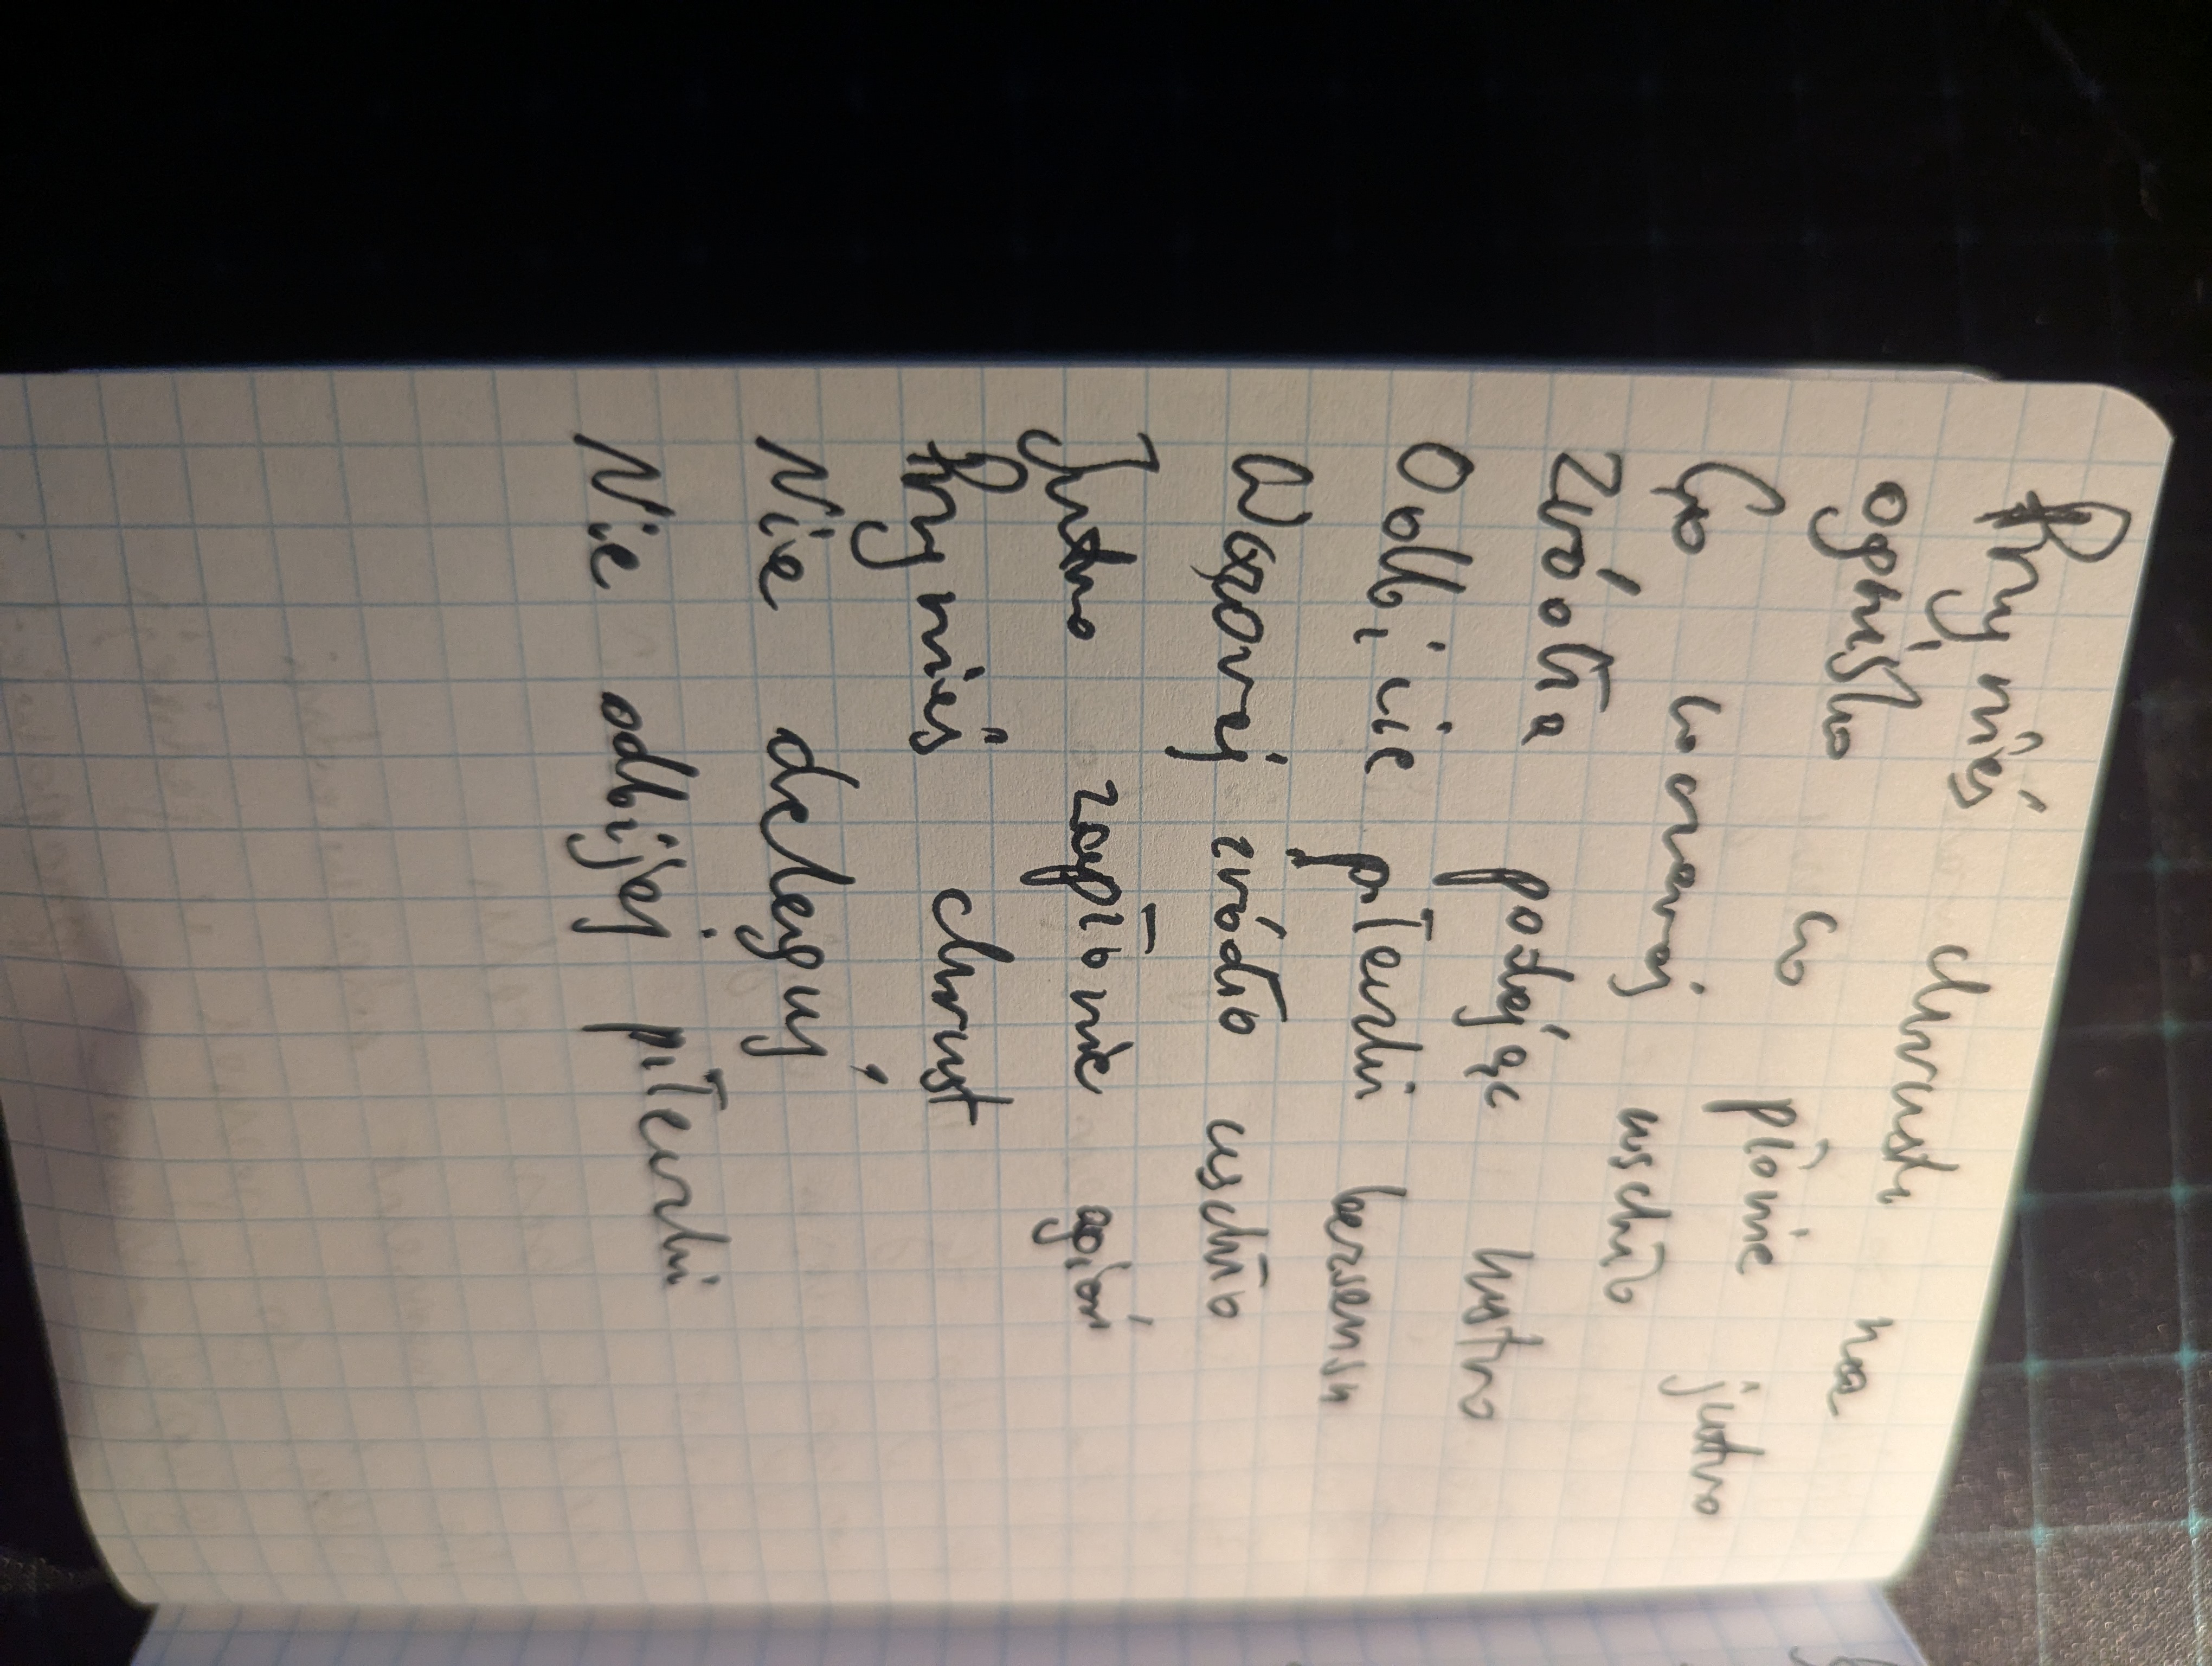 Przynieś chrustu na
ognisko co płonie jutro
Co wczoraj uschło
Źródła podając lustro
Odbicie piłeczki bezsensu
Wczoraj źródło uschło
Jutro zapłonie ogień
Przynieś chrust
Nie deleguj
Nie odbijaj piłeczki